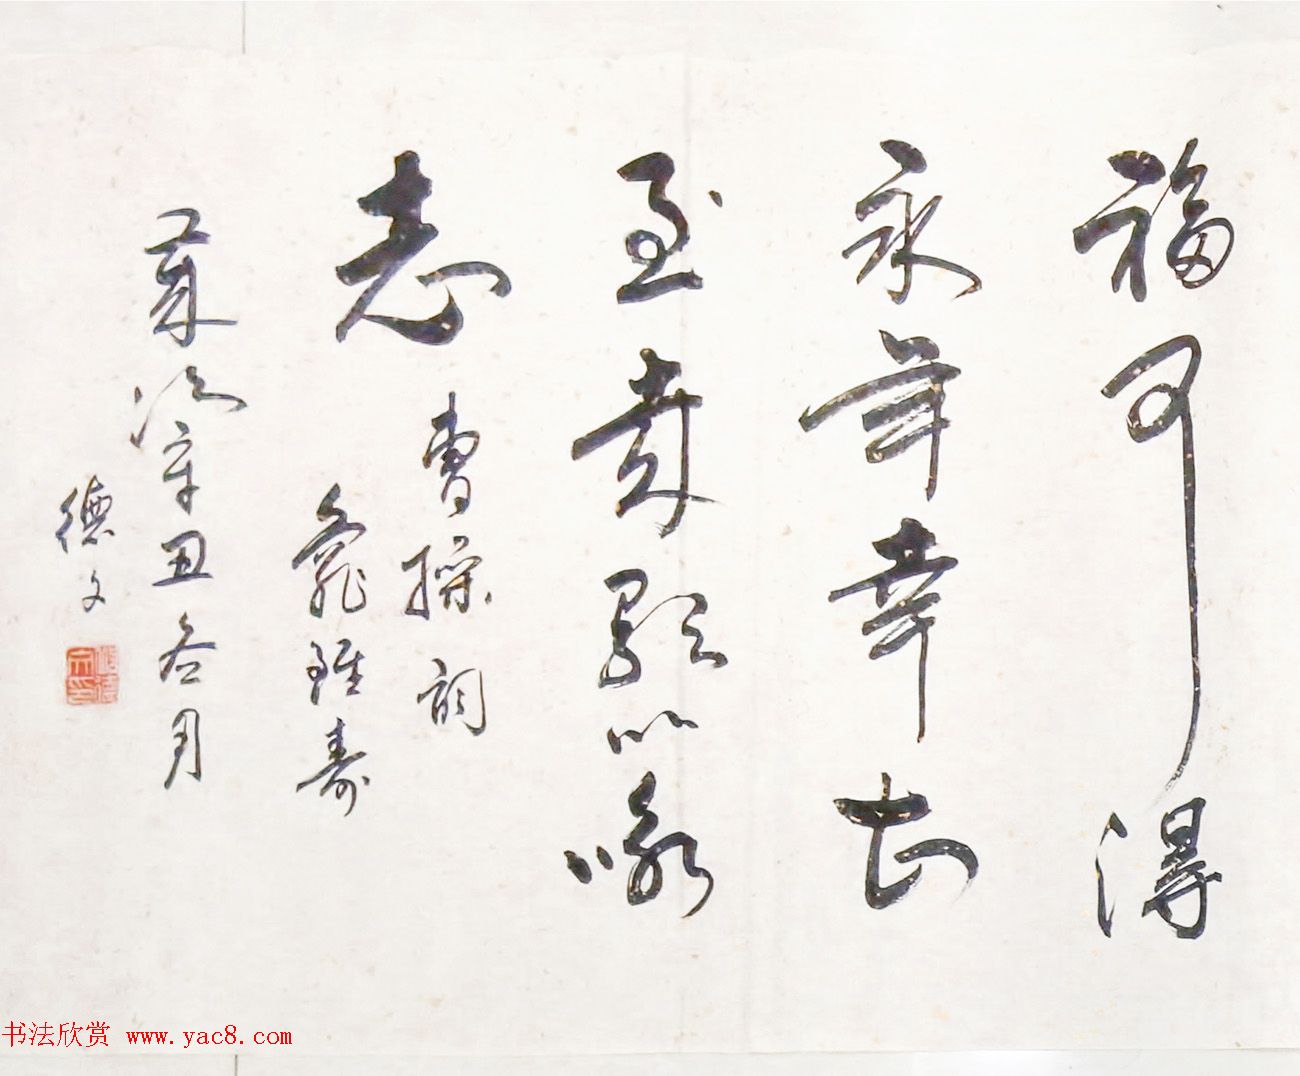 福可得
永年幸甚
至哉歌以咏
志
曹操詞
龜雖壽
歲次辛丑冬月
德文
书法欣赏 www.yac8.com